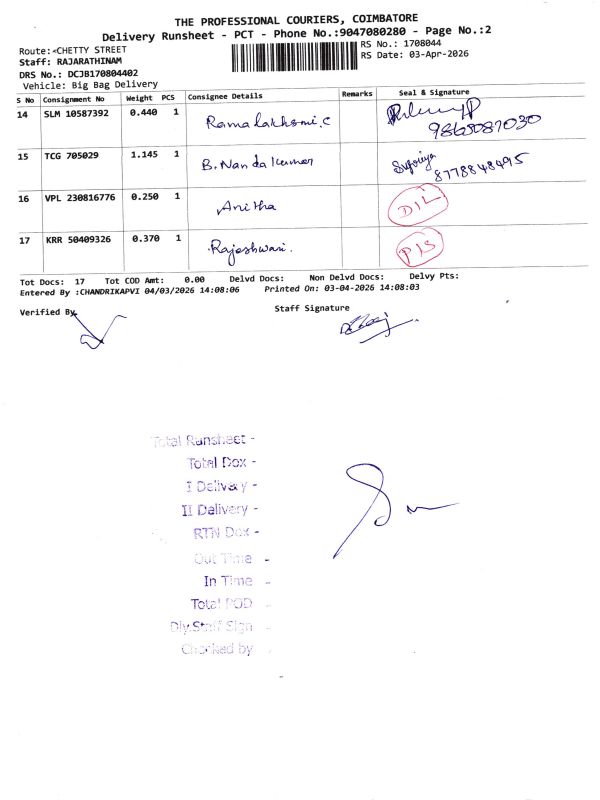 THE PROFESSIONAL COURIERS, COIMBATORE
Delivery Runsheet - PCT - Phone No.:9047080280 - Page No.:2
Route: <CHETTY STREET
RS No.: 1708044
Staff: RAJARATHINAM
RS Date: 03-Apr-2026
DRS No.: DCJB170804402
Vehicle: Big Bag Delivery
S No Consignment No Weight PCS Consignee Details Remarks Seal & Signature
14 SLM 10587392 0.440 1 Ramalakhsmi.C
9865087030
15 TCG 705029 1.145 1 B. Nanda Kumar Supriya
8778848495
16 VPL 230816776 0.250 1 Anitha DIL
17 KRR 50409326 0.370 1 Rajeshwari. PIS
Tot Docs: 17 Tot COD Amt: 0.00 Delvd Docs: Non Delvd Docs: Delvy Pts:
Entered By :CHANDRIKAPVI 04/03/2026 14:08:06 Printed On: 03-04-2026 14:08:03
Verified By
Staff Signature
Total Runsheet -
Total Dox -
I Delivery -
II Delivery -
RTN Dox -
Out Time -
In Time -
Total POD -
Dly.Staff Sign -
Checked by -